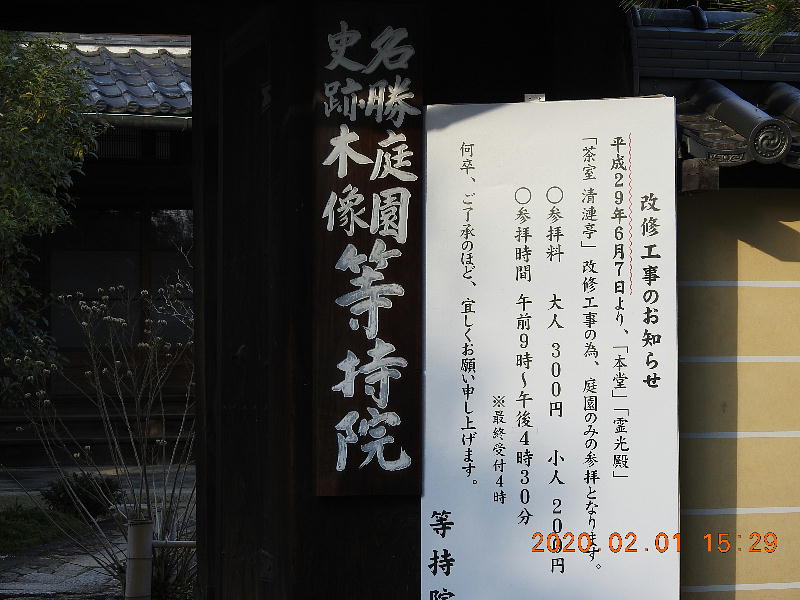 名勝庭園
史跡木像
等持院
改修工事のお知らせ
平成29年6月7日より、「本堂」「霊光殿」
「茶室 清漣亭」改修工事の為、庭園のみの参拝となります。
〇参拝料 大人 300円 小人 200円
〇参拝時間 午前9時～午後4時30分
※最終受付4時
何卒、ご了承のほど、宜しくお願い申し上げます。
等持院
2020.02.01 15:29